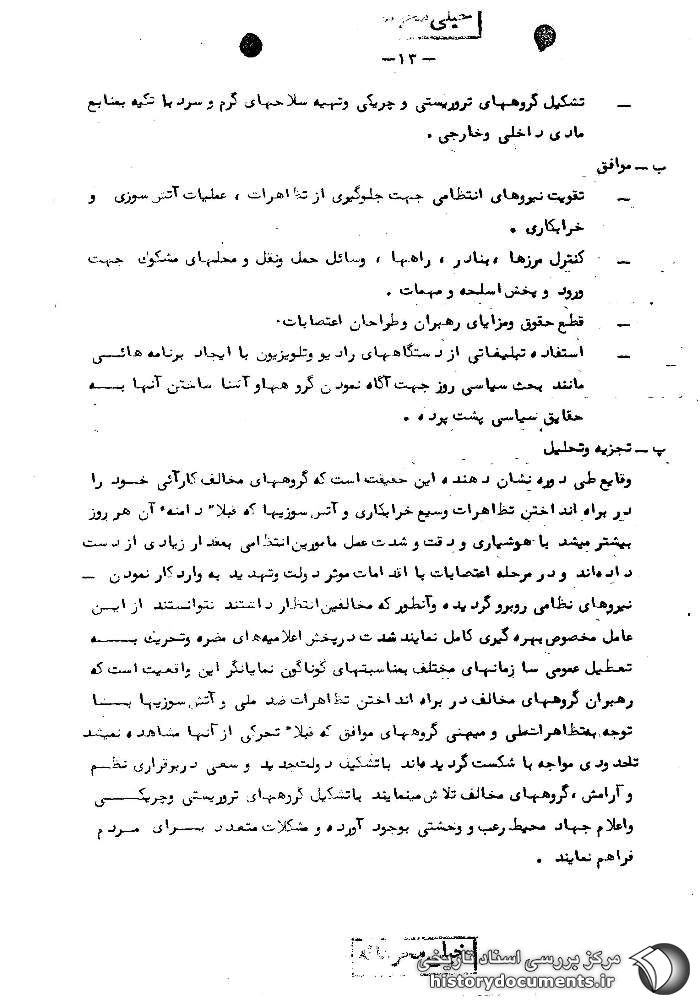 خیلی
-۱۳-
ـ تشکیل گروههای تروریستی و چریکی وتهیه سلاحهای گرم و سرد با تکیه بمنابع
مادی داخلی وخارجی .
ب ـ موافق
ـ تقویت نیروهای انتظامی جهت جلوگیری از تظاهرات ، عملیات آتش سوزی و
خرابکاری .
ـ کنترل مرزها ، بنادر ، راهها ، وسائل حمل ونقل و محلهای مشکوک جهت
ورود و پخش اسلحه و مهمات .
ـ قطع حقوق ومزایای رهبران و طراحان اعتصابات .
ـ استفاده تبلیغاتی از دستگاههای رادیو وتلویزیون با ایجاد برنامه هائی
مانند بحث سیاسی روز جهت آگاه نمودن گروهها و آشنا ساختن آنها به
حقایق سیاسی پشت پرده .
پ ـ تجزیه وتحلیل
وقایع طی دوره نشان دهنده این حقیقت است که گروههای مخالف کارآئی خود را
در براه انداختن تظاهرات وسیع خرابکاری و آتش سوزیها که قبلا" دامنه آن هر روز
بیشتر میشد با هوشیاری و دقت و شدت عمل مامورین انتظامی بمقدار زیادی از دست
داده‌اند و در مرحله اعتصابات با اقدامات موثر دولت وتهدید به وادار کار نمودن ـ
نیروهای نظامی روبرو گردیده وآنطور که مخالفین انتظار داشتند نتوانستند از این
عامل مخصوص بهره گیری کامل نمایند شدت در پخش اعلامیه‌های مضره وتحریک به
تعطیل عمومی سازمانهای مختلف بمناسبتهای گوناگون نمایانگر این واقعیت است که
رهبران گروههای مخالف در براه انداختن تظاهرات ضد ملی و آتش سوزیها با
توجه به تظاهرات ملی و میهنی گروههای موافق که قبلا" تحرکی از آنها مشاهده نمیشد
تاحدودی مواجه با شکست گردیده‌اند با تشکیل دولت جدید و سعی در برقراری نظم
و آرامش ، گروههای مخالف تلاش مینمایند با تشکیل گروههای تروریستی وچریکی
واعلام جهاد محیط رعب و وحشتی بوجود آورده و مشکلات متعدد برای مردم
فراهم نمایند .
خیلی
مرکز بررسی اسناد تاریخی
historydocuments.ir